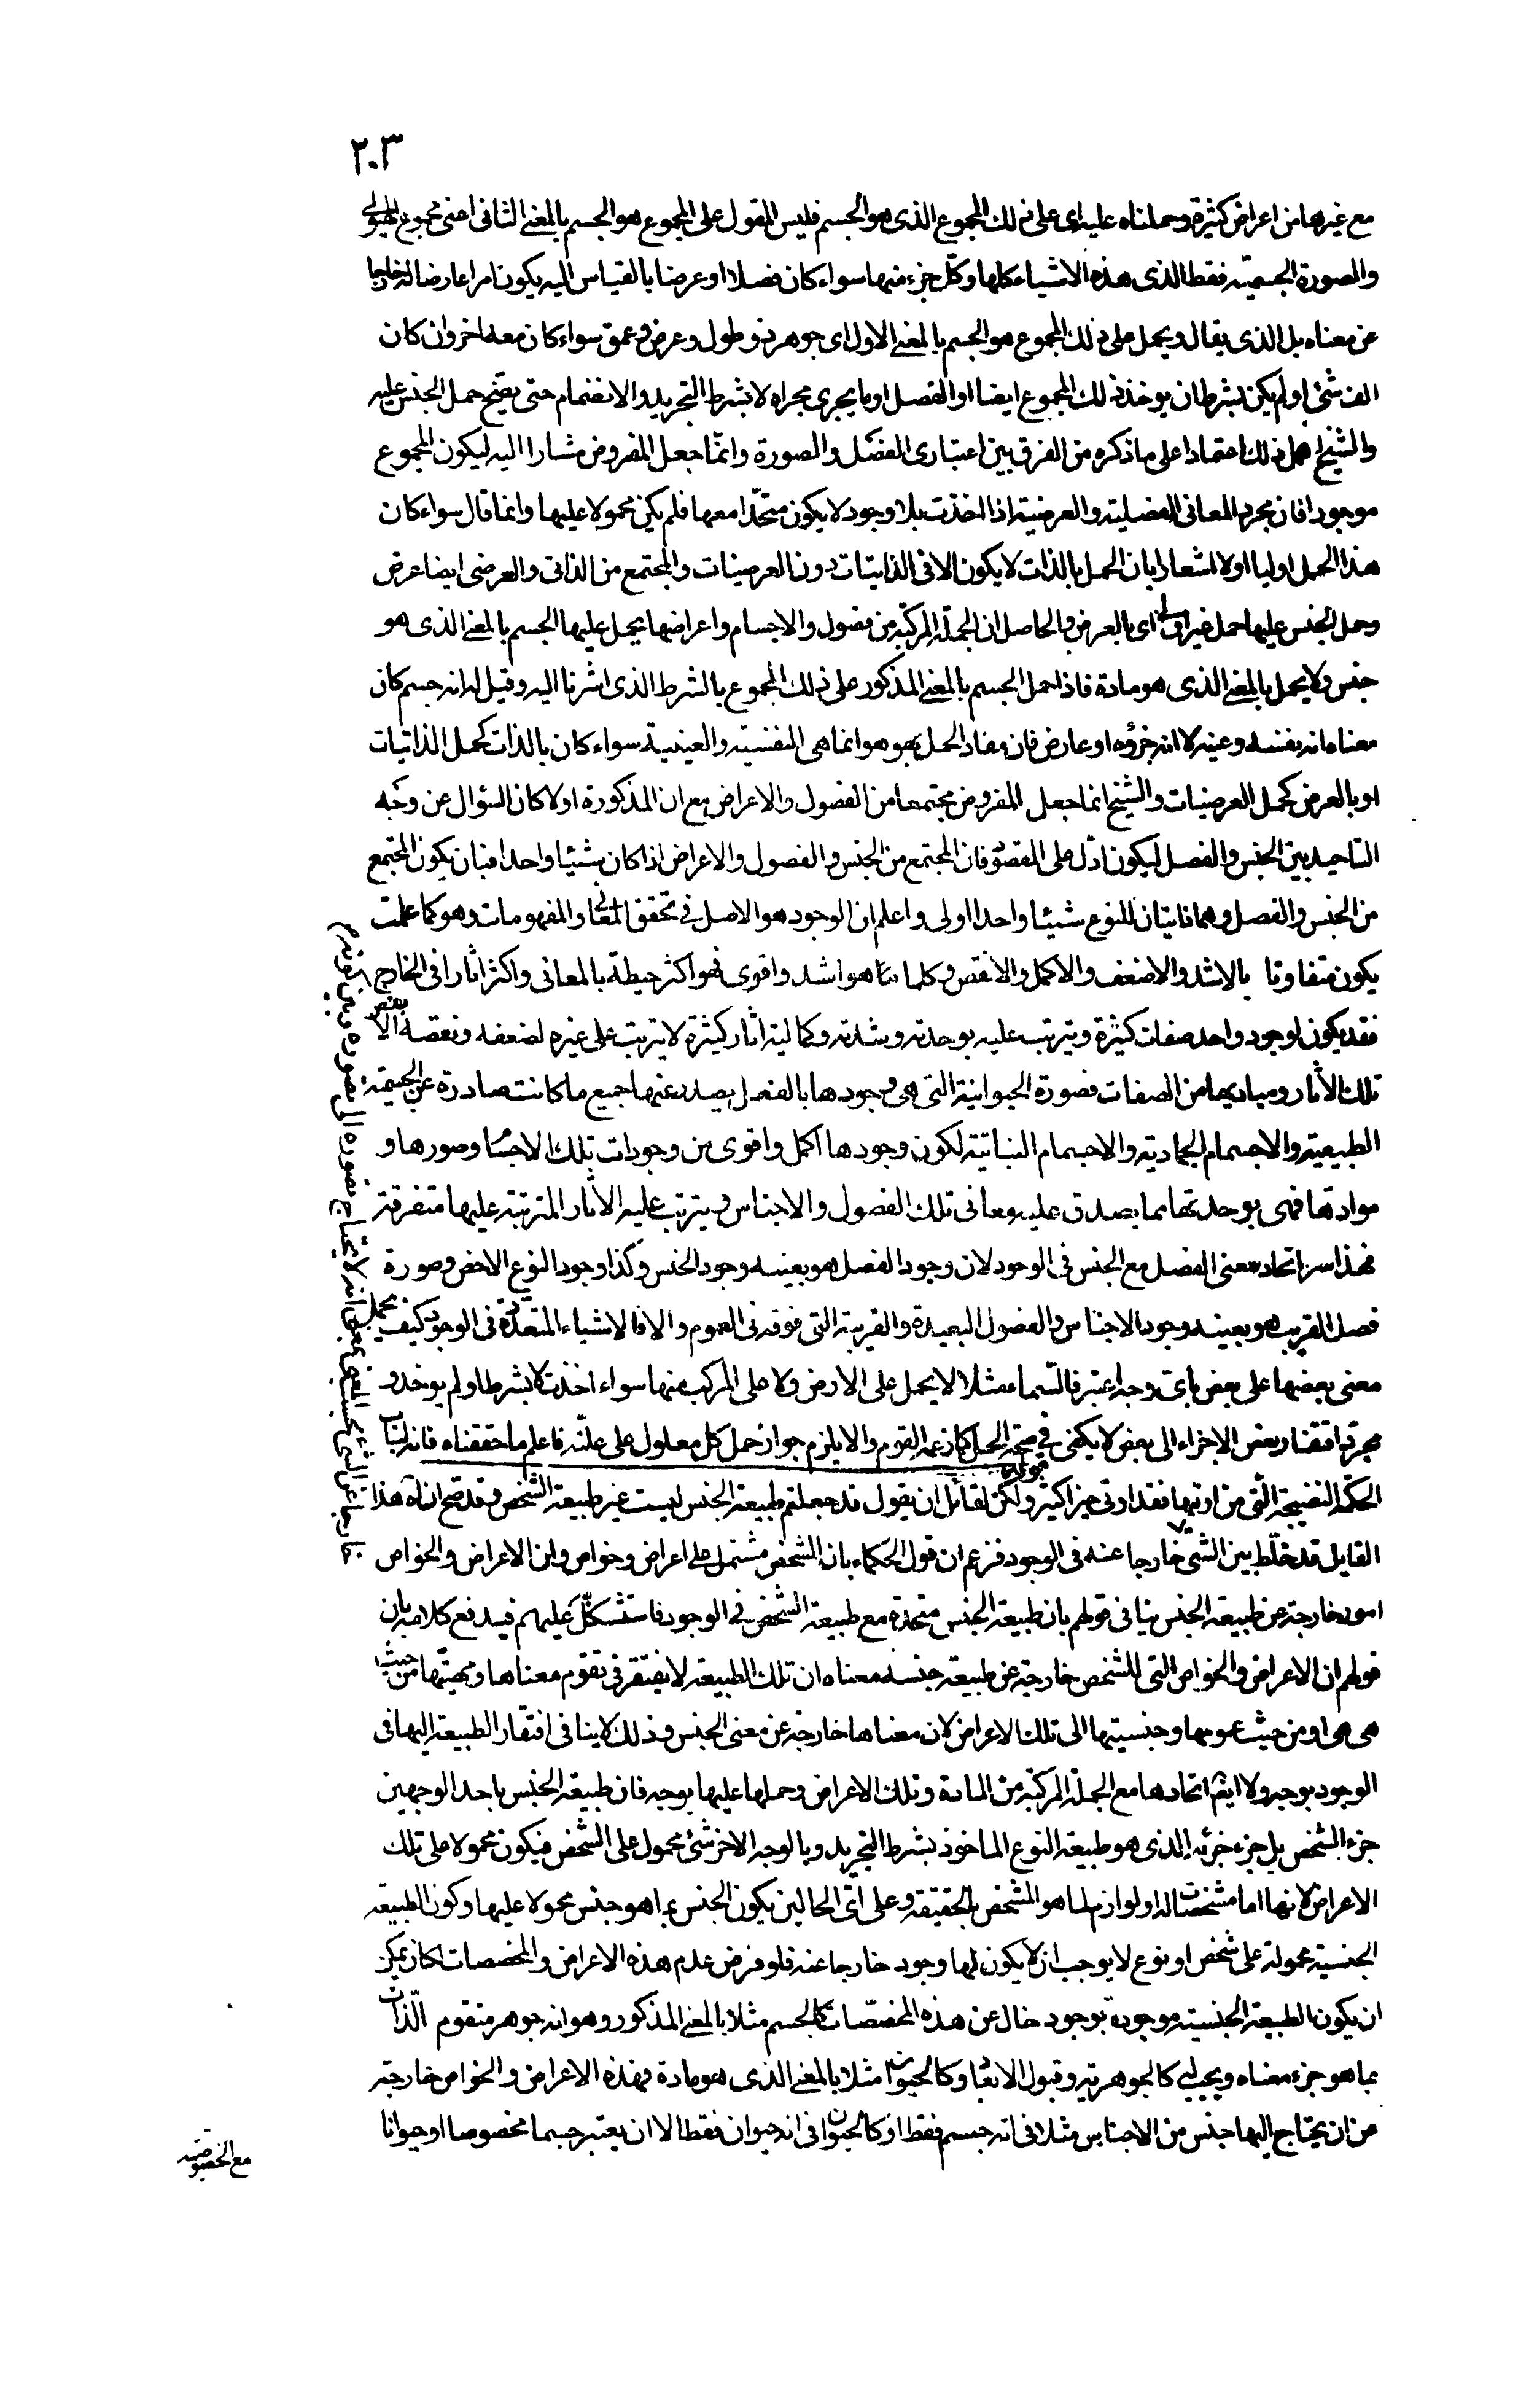 ٢٠٣
مع غيرها من اعراض كثيرة وحملناه عليه اى على ذلك المجموع الذى هو الجسم فليس المقول على المجموع هو الجسم بالمعنى الثانى اعنى مجموع الهيولى
والصورة الجسميّة فقط الذى هذه الاشياء كلها وكلّ جزء منها سواء كان فصلا او عرضا بالقياس اليه يكون امرا عارضا له خارجا
عن معناه بل الذى يقال ويحمل على ذلك المجموع هو الجسم بالمعنى الاول اى جوهر ذو طول وعرض وعمق سواء كان معه اخر وان كان
الف شئ او لم يكن بشرط ان يوخذ ذلك المجموع ايضا او الفصل او ما يجرى مجراه لا بشرط التجريد والانضمام حتى يصّح حمل الجنس عليه
والشيخ اهمل ذلك اعتمادا على ما ذكره من الفرق بين اعتبارى الفصل والصورة وانّما جعل المفروض مشارا اليه ليكون المجموع
موجودا فان مجرد المعانى الفصلية والعرضية اذا اخذت بلا وجود لا يكون متحّدا معها فلم يكن محمولا عليها وانما قال سواء كان
هذا الحمل اوليا او لا اشعارا بان الحمل بالذات لا يكون الا فى الذاتيات دون العرضيات والمجتمع من الذاتى والعرضى ايضا عرض
وحمل الجنس عليها حمل غير اولى اى بالعرض والحاصل ان الجملة المركبّة من فصول والاجسام واعراضها يحمل عليها الجسم بالمعنى الذى هو
جنس ولا يحمل بالمعنى الذى هو مادة فاذا حمل الجسم بالمعنى المذكور على ذلك المجموع بالشرط الذى اشرنا اليه وقيل له انه جسم كان
معناه انه بنفسه وعينه لا انه جزؤه او عارض فان مفاد الحمل بهو هو انما هى النفسية والعينية سواء كان بالذات كحمل الذاتيات
او بالعرض كحمل العرضيات والشيخ انما جعل المفروض مجتمعا من الفصول والاعراض مع ان المذكورة اولا كان السؤال عن وجه
التاحيد بين الجنس والفصل ليكون ادلّ على المقصود فان المجتمع من الجنس والفصول والاعراض اذا كان شيئا واحدا فبان يكون المجتمع
من الجنس والفصل وهما ذاتيتان للنوع شيئا واحدا اولى واعلم ان الوجود هو الاصل فى تحقق المعانى والمفهومات وهو كما علمت
يكون متفاوتا بالاشد والاضعف والاكمل والانقص وكلما هو اشد واقوى فهو اكثر حيطة بالمعانى واكثر اثارا فى الخارج
فقد يكون لوجود واحد صفات كثيرة ويترتب عليه بوحدته وشدته وكماليته اثار كثيرة لا يترتب على غيره لضعفه ونقصه الا بعض
تلك الأثار ومباديها من الصفات فصورة الحيوانية التى هى وجودها بالفعل يصدر عنها جميع ما كانت صادرة عن الجسمية
الطبيعية والاجسام الجمادية والاجسام النباتية لكون وجودها اكمل واقوى من وجودات تلك الاجسام وصورها و
موادّها فهى بوحدتها مما يصدق عليه معانى تلك الفصول والاجناس ويترتب عليه الأثار المترتبة عليها متفرقة
فهذا سر اتحاد معنى الفصل مع الجنس فى الوجود لان وجود الفصل هو بعينه وجود الجنس وكذا وجود النوع الاخص وصورة
فصل القريب هو بعينه وجود الاجناس والفصول البعيدة والقريبة التى فوقه فى العموم والا فالاشياء المتعدّدة فى الوجود كيف يحمل
معنى بعضها على بعض باىّ وجه اعتبر فالسّماء مثلا لا يحمل على الارض ولا على المركب منها سواء اخذت لا بشرط او لم يوخذ و
مجرد افتقار بعض الاجزاء الى بعض لا يكفى فى صحّة الحمل كما زعمه القوم والا يلزم جواز حمل كل معلول على علتّه فاعلم ما حققناه فانه لباب
الحكمة النضيجة الّتى من اوتيها فقد اوتى خيرا كثيرا قوله ولكن لقائل ان يقول قد جعلتم طبيعة الجنس ليست غير طبيعة الشخص وقد صّح ان اه هذا
القايل قد خلّط بين الشئ خارجا عنه فى الوجود فزعم ان قول الحكماء بان الشخص مشتمل على اعراض وخواص وان الاعراض والخواص
امور خارجة عن طبيعة الجنس ينافى قولهم بان طبيعة الجنس متحدة مع طبيعة الشخص فى الوجود فاستشكلّ عليهم فيدفع كلامه بان
قولهم ان الاعراض والخواص التى للشخص خارجة عن طبيعة جنسه معناه ان تلك الطبيعة لا يفتقر فى تقوّم معناها ومهيتّها من حيث
هى هى او من حيث عمومها وجنسيتها الى تلك الاعراض لان معناها خارجة عن معنى الجنس وذلك لا ينافى افتقار الطبيعة اليها فى
الوجود بوجه ولا ايضا اتحادها مع الجملة المركبّة من المادة وتلك الاعراض وحملها عليها بوجه فان طبيعة الجنس باحد الوجهين
جزء الشخص بل جزء جزئه الذى هو طبيعة النوع الماخوذ بشرط التجريد وبالوجه الاخر شئ محمول على الشخص فيكون محمولا على تلك
الاعراض لانها اما مشخصّات له او لوازم لما هو المشخص بالحقيقة وعلى اىّ الحالين يكون الجنس بما هو جنس محمولا عليها وكون الطبيعة
الجنسية محمولة على شخص او نوع لا يوجب ان لا يكون لها وجود خارجا عنه فلو فرض عدم هذه الاعراض والمخصصات لكان يمكن
ان يكون الطبيعة الجنسية موجودة بوجود خال عن هذه المخصصّات كالجسم مثلا بالمعنى المذكور وهو انه جوهر متقوم الذّات
بما هو جزء معناه ويجب له كالجوهرية وقبول الابعاد وكالحيوان مثلا بالمعنى الذى هو مادة فهذه الاعراض والخواص خارجة
من ان يحتاج اليها جنس من الاجناس مثلا فى انه جسم فقط او كالحيوان فى انه حيوان فقط الا ان يعتبر جسما مخصوصا او حيوانا
مع الخصوصية
خارجا عن الشئ بحسب المعنى